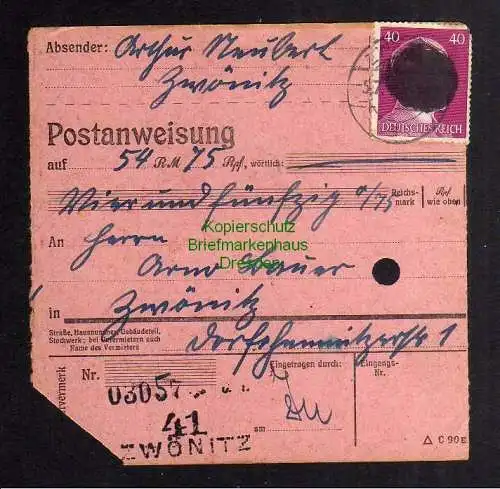 Absender: Arthur Neubert
Zwönitz
40 40
DEUTSCHES REICH
Postanweisung
auf 54 RM 75 Rpf, wörtlich:
Vier und fünfzig 0/75 Reichsmark Rpf wie oben
An Herrn
Kopierschutz
Briefmarkenhaus
Dresden
Arno Bauer
in Zwönitz
Straße, Hausnummer, Gebäudeteil,
Stockwerk; bei Untermietern auch
Name des Vermieters
Dorfchemnitzerstr 1
Nr. Eingetragen durch: Eingangs-Nr.
03057
41
am
ZWÖNITZ
C 90 E